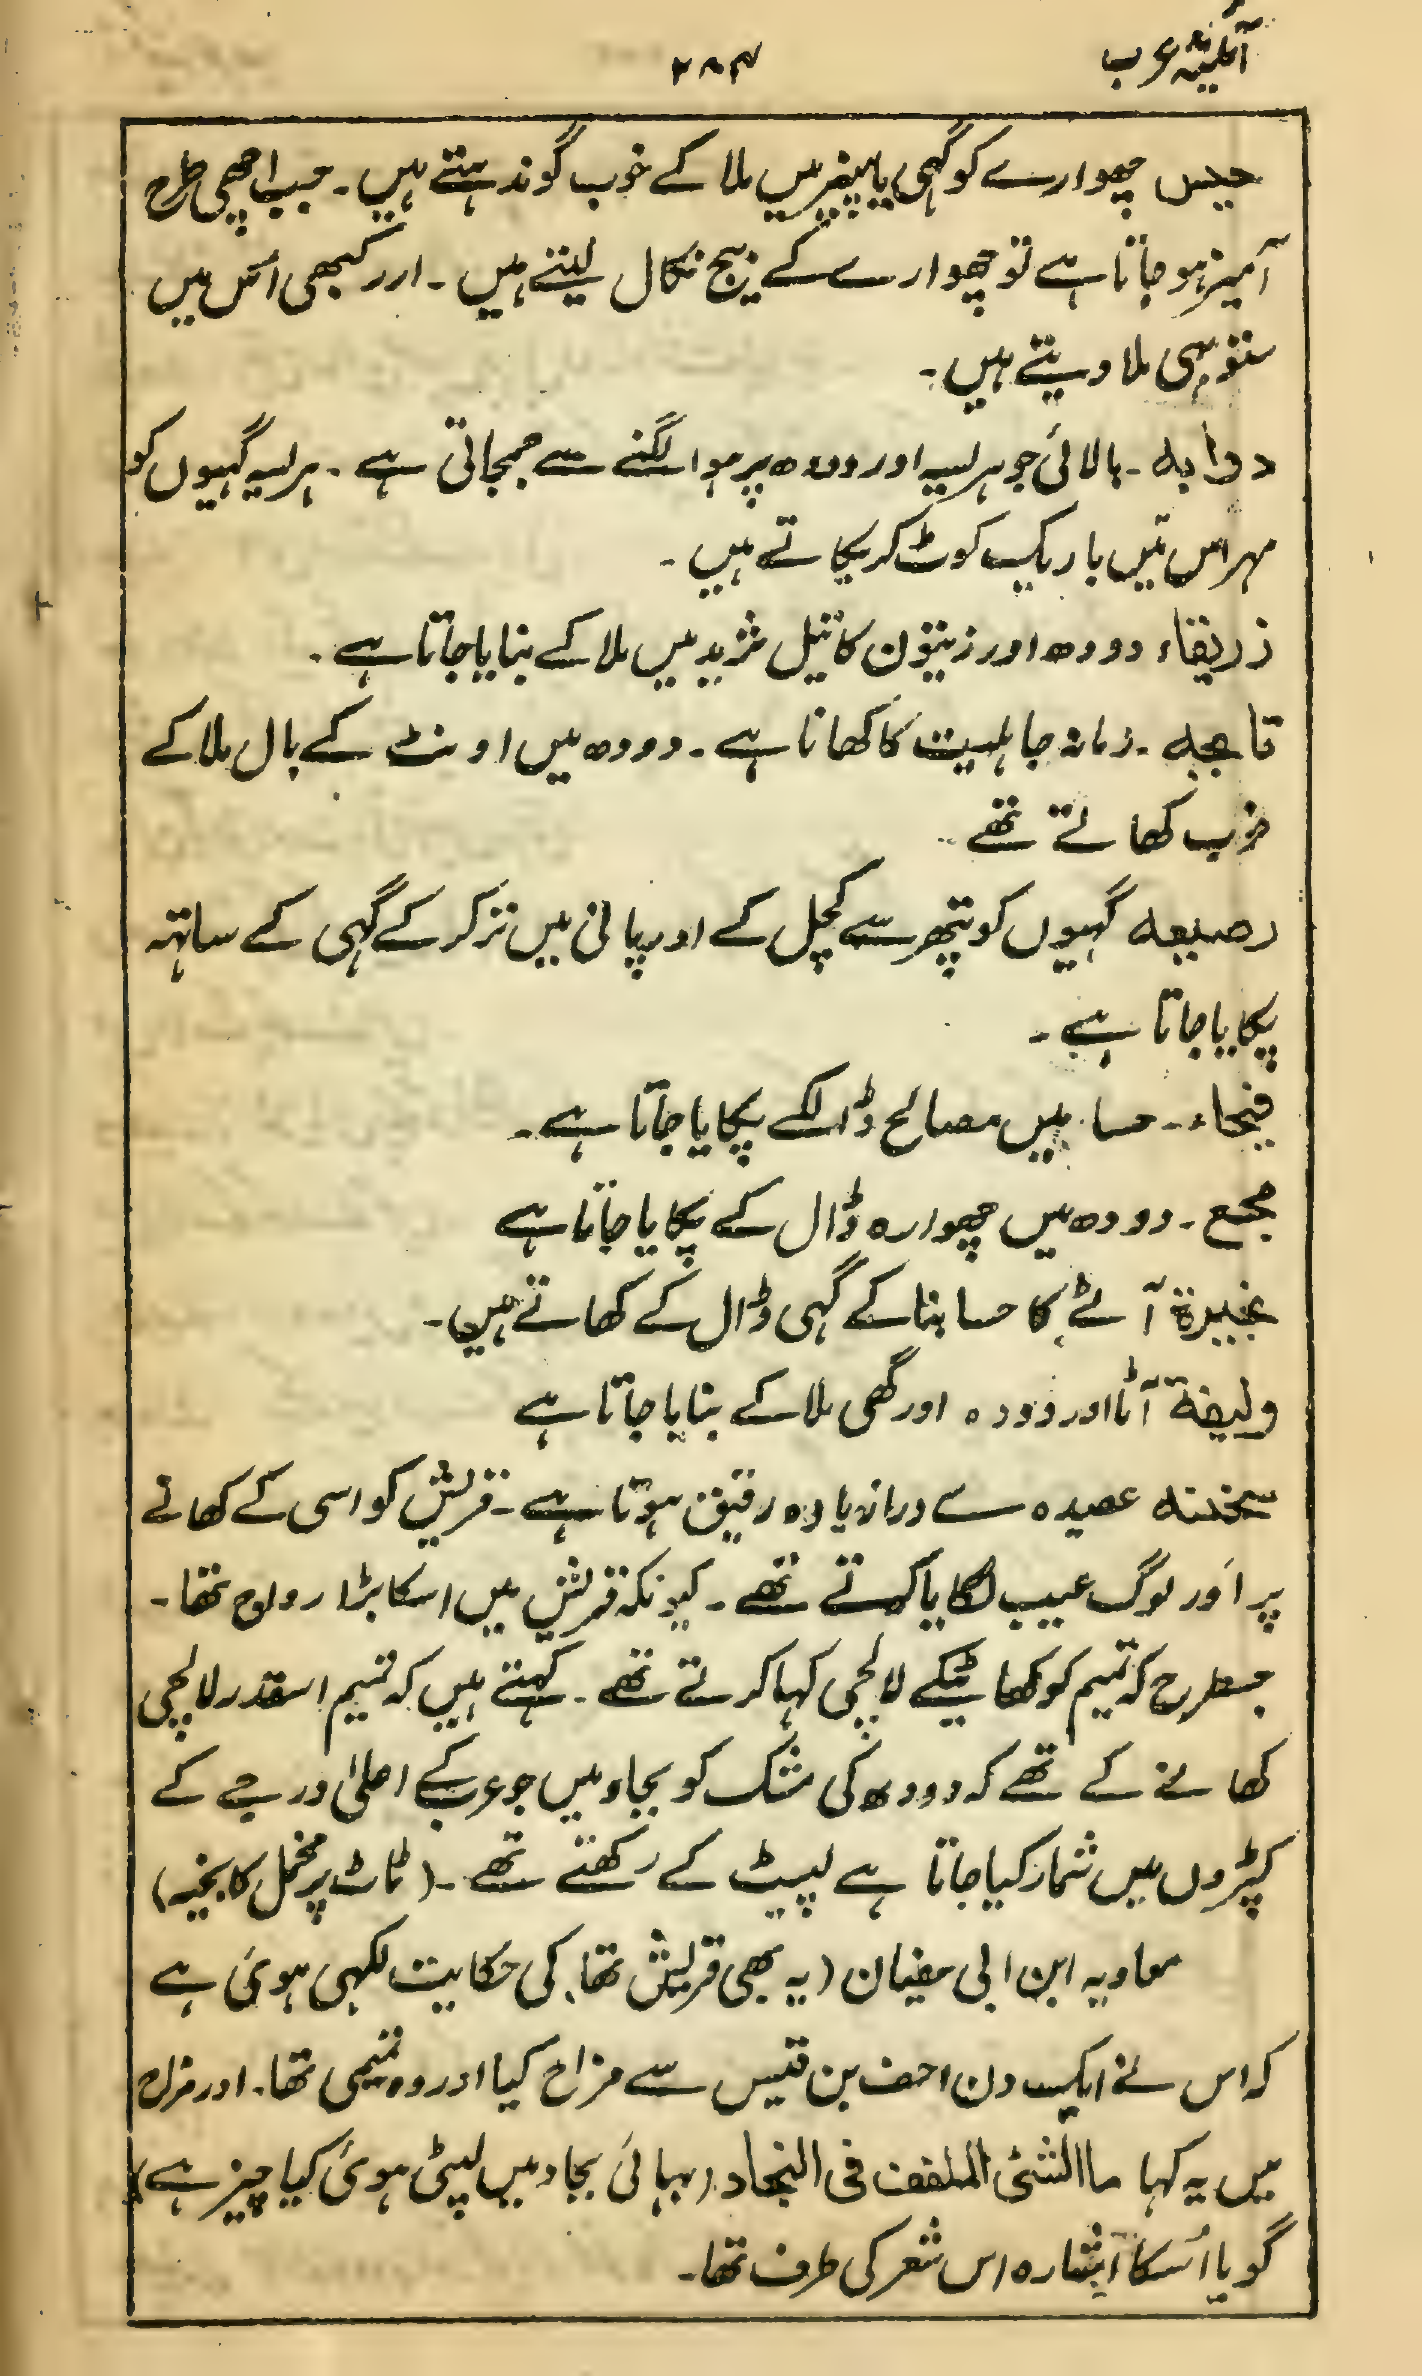 آئینۂ عرب
۲۸۴
حیس چھوارے کو گھی یا پنیر میں ملا کے خوب گوندہتے ہیں۔ جب اچھی طرح
آمیز ہو جاتا ہے تو چھوارے کے بیج نکال لیتے ہیں۔ اور کبھی اُس میں
ستو بہی ملا دیتے ہیں۔
دوابه۔ بالائی جو ہریسہ اور دودہ پر ہوا لگنے سے جمجاتی ہے۔ ہریسہ گیہوں کو
مہراس میں باریک کوٹ کر پکاتے ہیں۔
زریقاء دودھ اور زیتون کا تیل ثرید میں ملا کے بنایا جاتا ہے۔
زمانہ جاہلیت کا کھانا ہے۔ دودہ میں اونٹ کے بال ملا کے
خوب کھاتے تھے
رصیعه گیہوں کو پتھر سے کچل کے اور پانی میں تر کر کے گہی کے ساتہہ
پکایا جاتا ہے۔
فیحاء۔ حسا میں مصالح ڈالکے پکایا جاتا ہے۔
مجیع۔ دودہ میں چھوارہ ڈال کے پکایا جاتا ہے
آٹے کا حسا بنا کے گہی ڈال کے کھاتے ہیں۔
ولیقة آٹا اور دودہ اور گھی ملا کے بنایا جاتا ہے
سخینه عصیدہ سے ذرا زیادہ رقیق ہوتا ہے۔ قریش کو اسی کے کھانے
پر اَور لوگ عیب لگایا کرتے تھے۔ کیونکہ قریش میں اسکا بڑا رواج تھا۔
جسطرح کہ تمیم کو کھانیکے لالچی کہا کرتے تھے۔ کہتے ہیں کہ تمیم اسقدر لالچی
کھانے کے تھے کہ دودھ کی مشک کو بجاد میں جو عرب کے اعلیٰ درجے کے
کپڑوں میں شمار کیا جاتا ہے لپیٹ کے رکھتے تھے۔ (ٹاٹ پر مخمل کا بخیہ)
معاویہ ابن ابی سفیان (یہ بھی قریش تھا) کی حکایت لکہی ہوئی ہے
کہ اس نے ایک دن احنف بن قیس سے مزاح کیا اور وہ تمیمی تھا۔ اور مزاح
میں یہ کہا ما الشئ الملفف فی البجاد (بہائی بجاد میں لپٹی ہوئی کیا چیز ہے)
گویا اُسکا اشارہ اس شعر کی طرف تھا۔